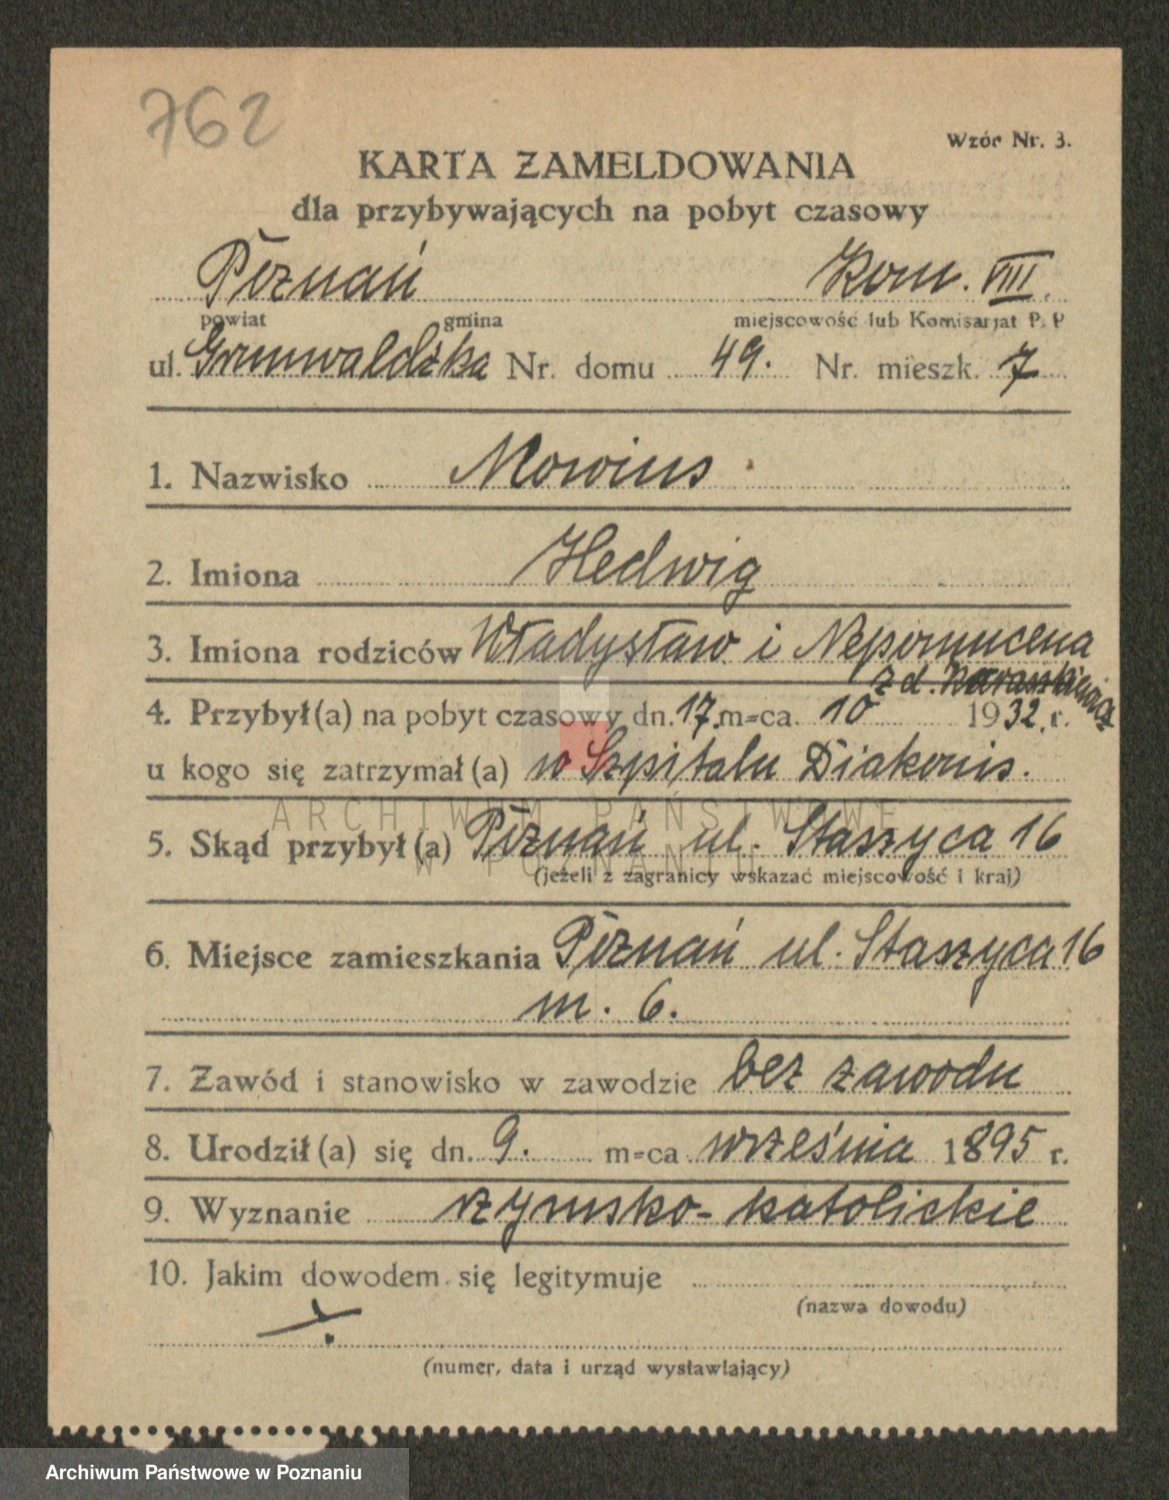 762
Wzór Nr. 3.
KARTA ZAMELDOWANIA
dla przybywających na pobyt czasowy
Poznań Kom. VIII.
powiat gmina miejscowość lub Komisarjat P. P
ul. Grunwaldzka Nr. domu 49. Nr. mieszk. 7
1. Nazwisko Mowius
2. Imiona Hedwig
3. Imiona rodziców Władysław i Nepomucena
z d. Karaśkiewicz
4. Przybył(a) na pobyt czasowy dn. 17. m=ca. 10 1932. r.
u kogo się zatrzymał(a) w Szpitalu Diakonis.
ARCHIWUM PAŃSTWOWE
5. Skąd przybył(a) Poznań ul. Staszyca 16
W POZNANIU
(jeżeli z zagranicy wskazać miejscowość i kraj)
6. Miejsce zamieszkania Poznań ul. Staszyca 16
m. 6.
7. Zawód i stanowisko w zawodzie bez zawodu
8. Urodził(a) się dn. 9. m=ca września 1895 r.
9. Wyznanie rzymsko-katolickie
10. Jakim dowodem się legitymuje
(nazwa dowodu)
(numer, data i urząd wystawiający)
Archiwum Państwowe w Poznaniu